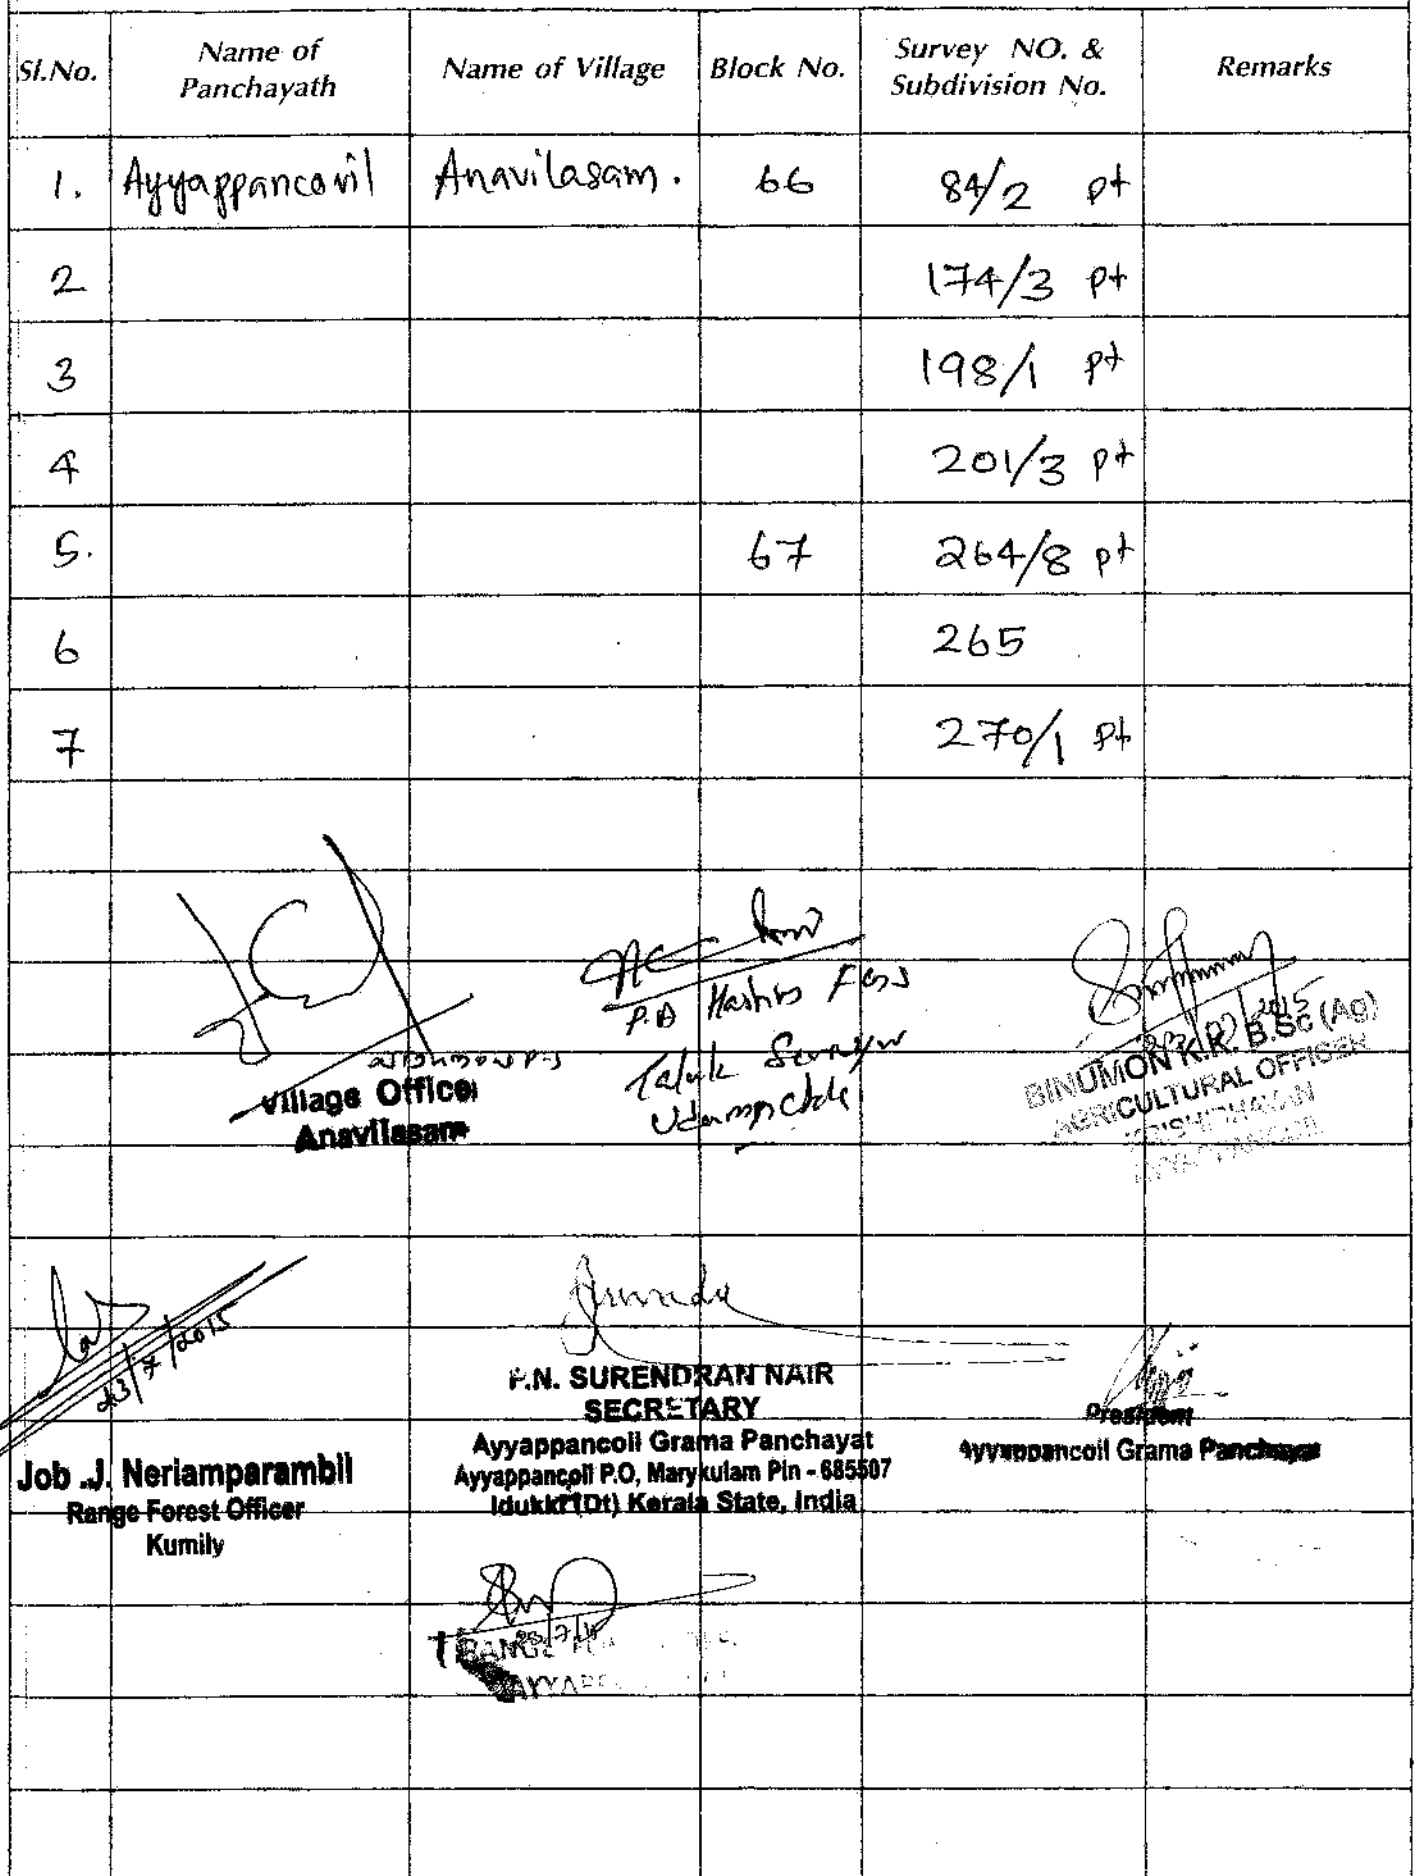 Sl.No. Name of Panchayath Name of Village Block No. Survey NO. & Subdivision No. Remarks
1. Ayyappancovil Anavilasam. 66 84/2 pt
2 174/3 pt
3 198/1 pt
4 201/3 pt
5. 67 264/8 pt
6 265
7 270/1 pt
P.A
Taluk
Village Officer
Anavilasam
2015
BINUMON K.R. B.Sc (AG)
AGRICULTURAL OFFICER
KRISHIBHAVAN
23/7/2015
Job .J. Neriamparambil
Range Forest Officer
Kumily
P.N. SURENDRAN NAIR
SECRETARY
Ayyappancoil Grama Panchayat
Ayyappancoil P.O, Marykulam Pin - 685507
Idukki (Dt) Kerala State, India
President
Ayyappancoil Grama Panchayat